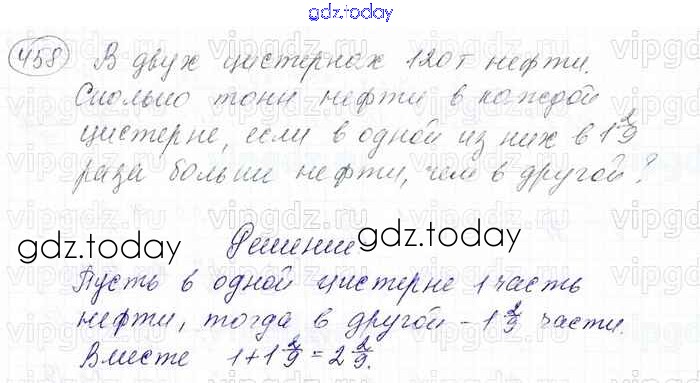 gdz.today
458 В двух цистернах 120т нефти.
Сколько тонн нефти в каждой
цистерне, если в одной из них в 1 2/9
раза больше нефти, чем в другой?
gdz.today Решение gdz.today
Пусть в одной цистерне 1 часть
нефти, тогда в другой – 1 2/9 части.
Вместе 1+1 2/9 = 2 2/9.